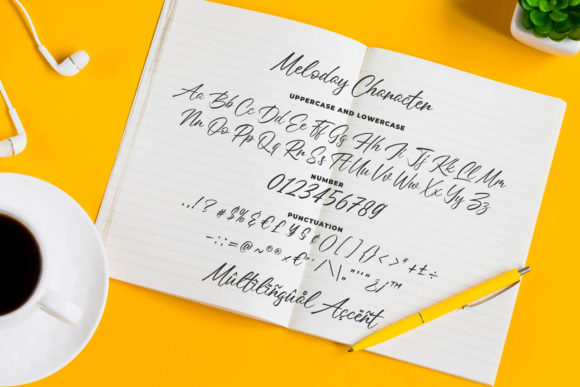 Meloday Character
UPPERCASE AND LOWERCASE
Aa Bb Cc Dd Ee Ff Gg Hh Ii Jj Kk Ll Mm
Nn Oo Pp Qq Rr Ss Tt Uu Vv Ww Xx Yy Zz
NUMBER
0123456789
PUNCTUATION
.,!? #$%&€£¥$¢()[]{}<>*+±÷
-:;=@~©®×"/\|
Mûltilîñgüâl Aççëñt